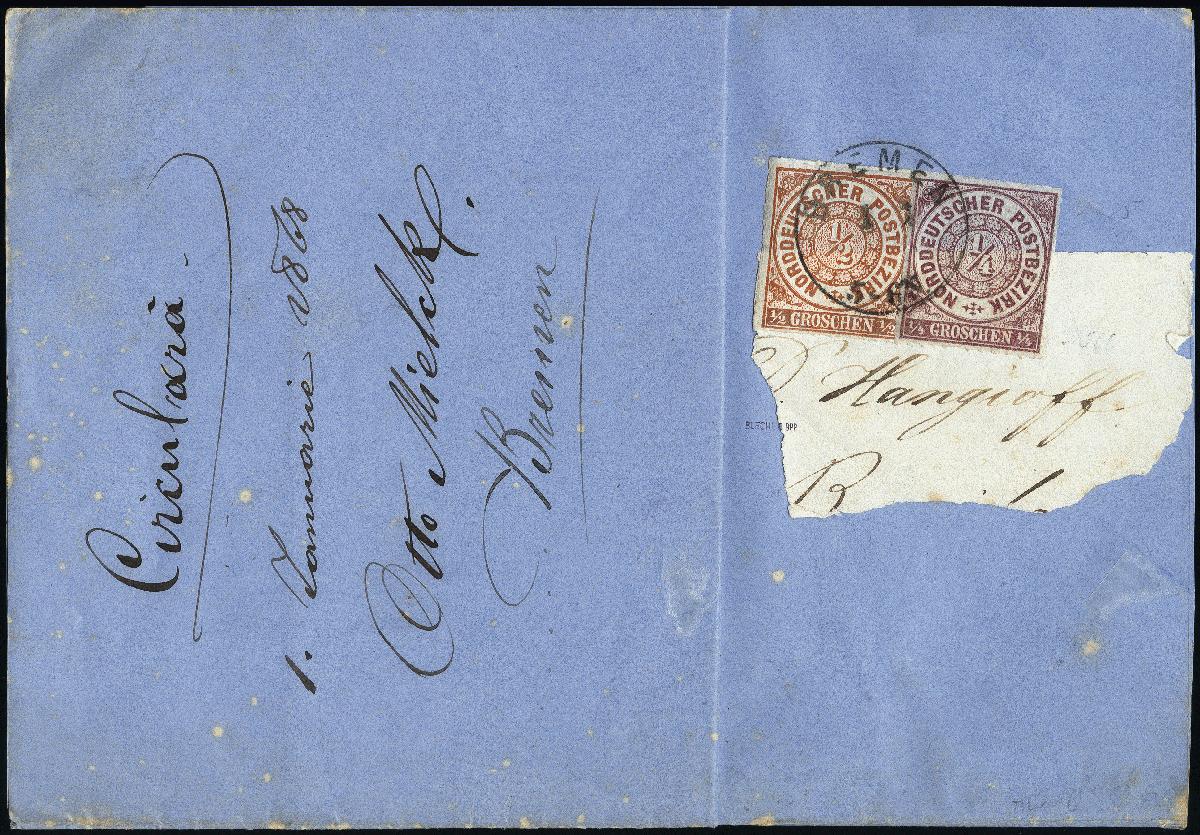 Circulara.
1. Januarie 1868
Otto Mielck.
Bremen
BREMEN
NORDDEUTSCHER POSTBEZIRK
1/2
1/2 GROSCHEN 1/2
NORDDEUTSCHER POSTBEZIRK
1/4
1/4 GROSCHEN 1/4
Hangioff.
B